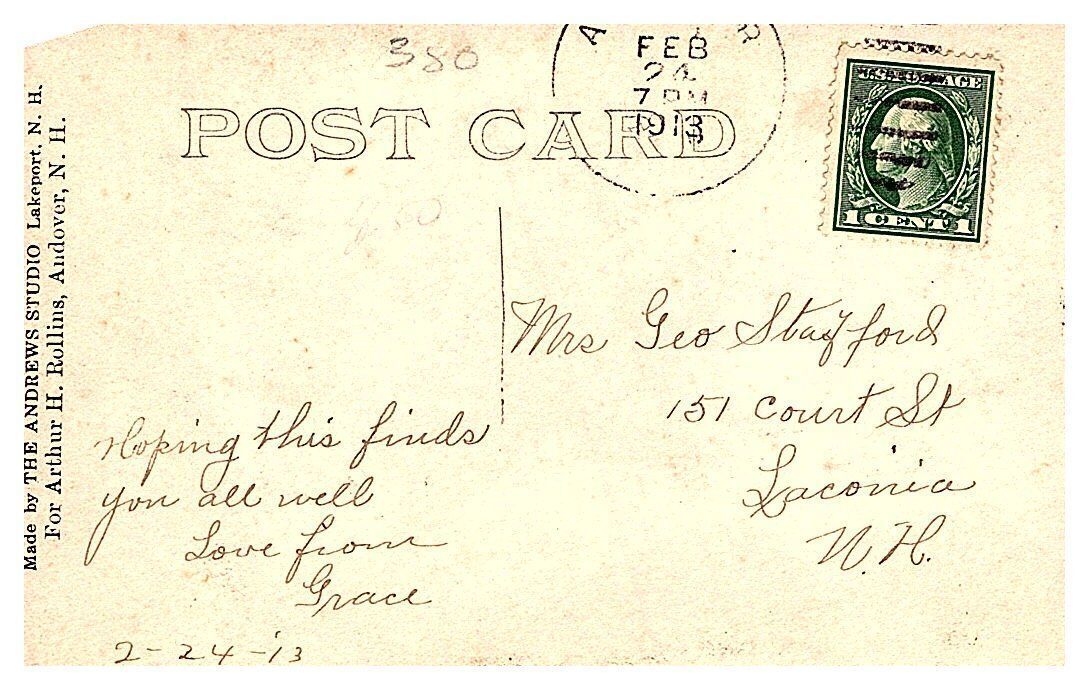 380
FEB
24
7 PM
1913
POST CARD
U.S. POSTAGE
1 CENT 1
Made by THE ANDREWS STUDIO Lakeport, N. H.
For Arthur H. Rollins, Andover, N. H.
Hoping this finds
you all well
Love from
Grace
2-24-13
Mrs Geo Stafford
151 Court St
Laconia
N.H.